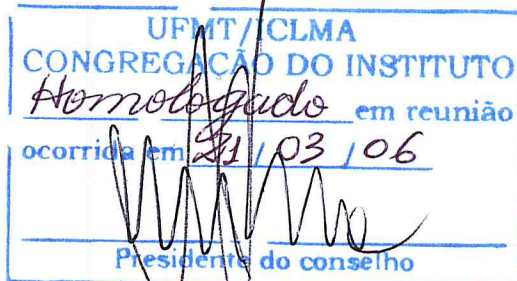 UFMT/ICLMA
CONGREGAÇÃO DO INSTITUTO
Homologado em reunião
ocorrida em 21 / 03 / 06
Presidente do conselho